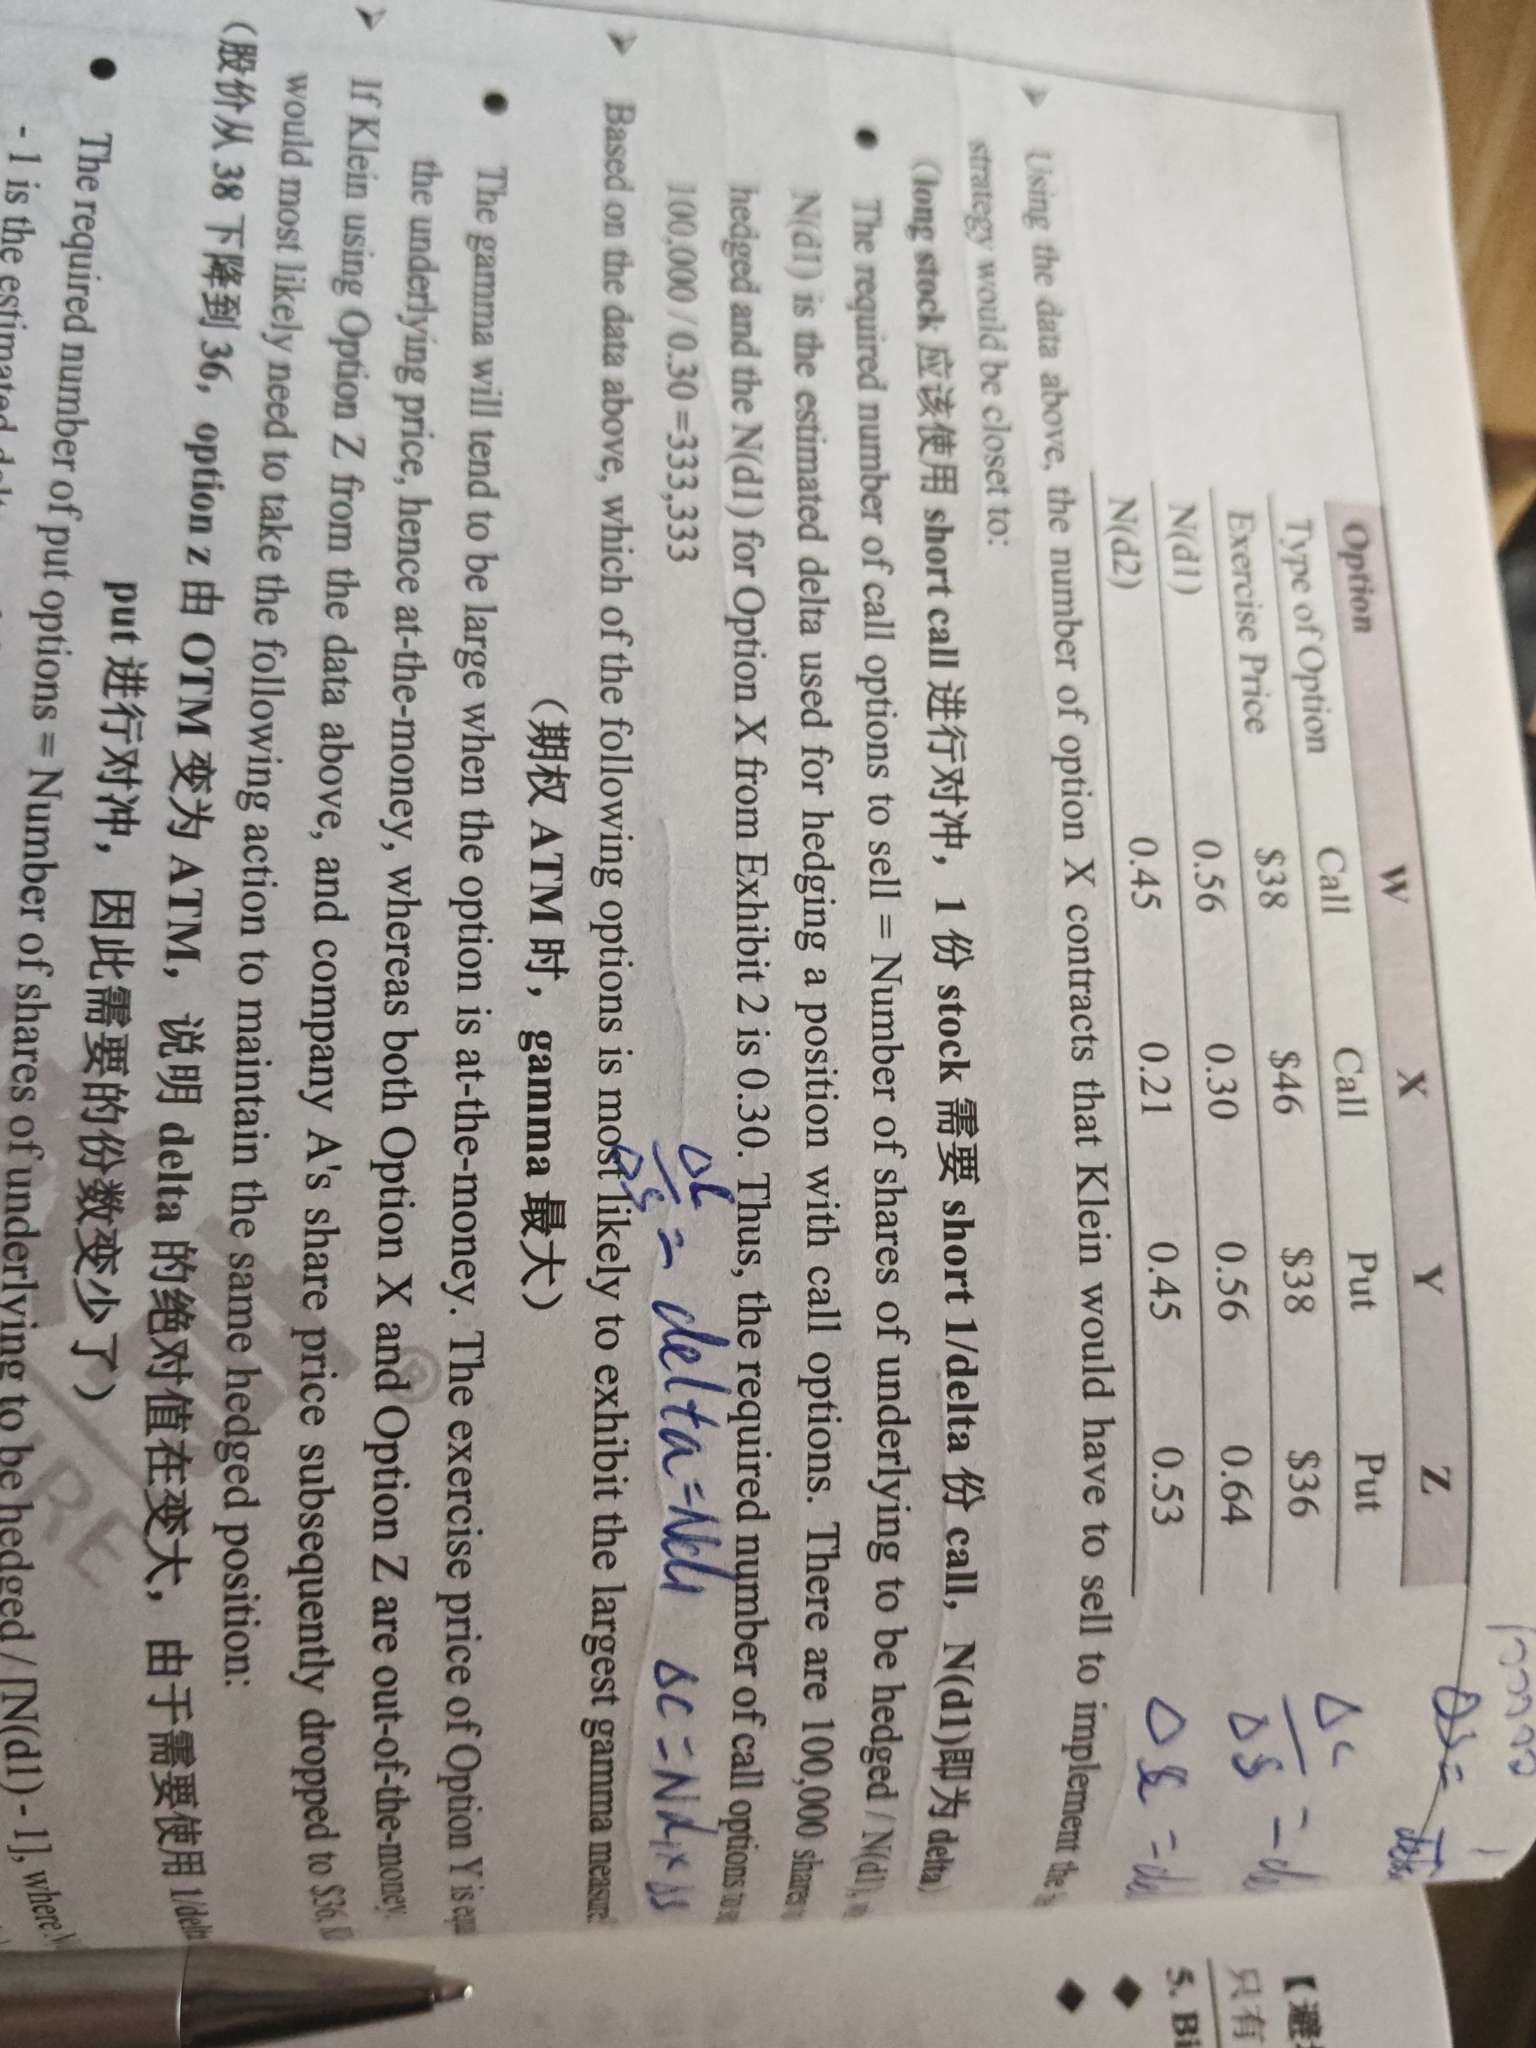 Option W X Y Z
Type of Option Call Call Put Put
Exercise Price $38 $46 $38 $36
N(d1) 0.56 0.30 0.56 0.64
N(d2) 0.45 0.21 0.45 0.53
➢ Using the data above, the number of option X contracts that Klein would have to sell to implement the
strategy would be closet to:
(long stock 应该使用 short call 进行对冲，1 份 stock 需要 short 1/delta 份 call，N(d1)即为 delta)
● The required number of call options to sell = Number of shares of underlying to be hedged / N(d1),
N(d1) is the estimated delta used for hedging a position with call options. There are 100,000 shares
hedged and the N(d1) for Option X from Exhibit 2 is 0.30. Thus, the required number of call options to
100,000 / 0.30 =333,333
ΔC/ΔS = delta = Nd1 ΔC = Nd1 × ΔS
➢ Based on the data above, which of the following options is most likely to exhibit the largest gamma measure
（期权 ATM 时，gamma 最大）
● The gamma will tend to be large when the option is at-the-money. The exercise price of Option Y is
the underlying price, hence at-the-money, whereas both Option X and Option Z are out-of-the-money.
➢ If Klein using Option Z from the data above, and company A's share price subsequently dropped to $36,
would most likely need to take the following action to maintain the same hedged position:
（股价从 38 下降到 36，option z 由 OTM 变为 ATM，说明 delta 的绝对值在变大，由于需要使用 1/delta
put 进行对冲，因此需要的份数变少了）
● The required number of put options = Number of shares of underlying to be hedged / [N(d1) - 1], where
- 1 is the estimated
ΔC/ΔS =
【避
只有
5. Bi
◆
◆